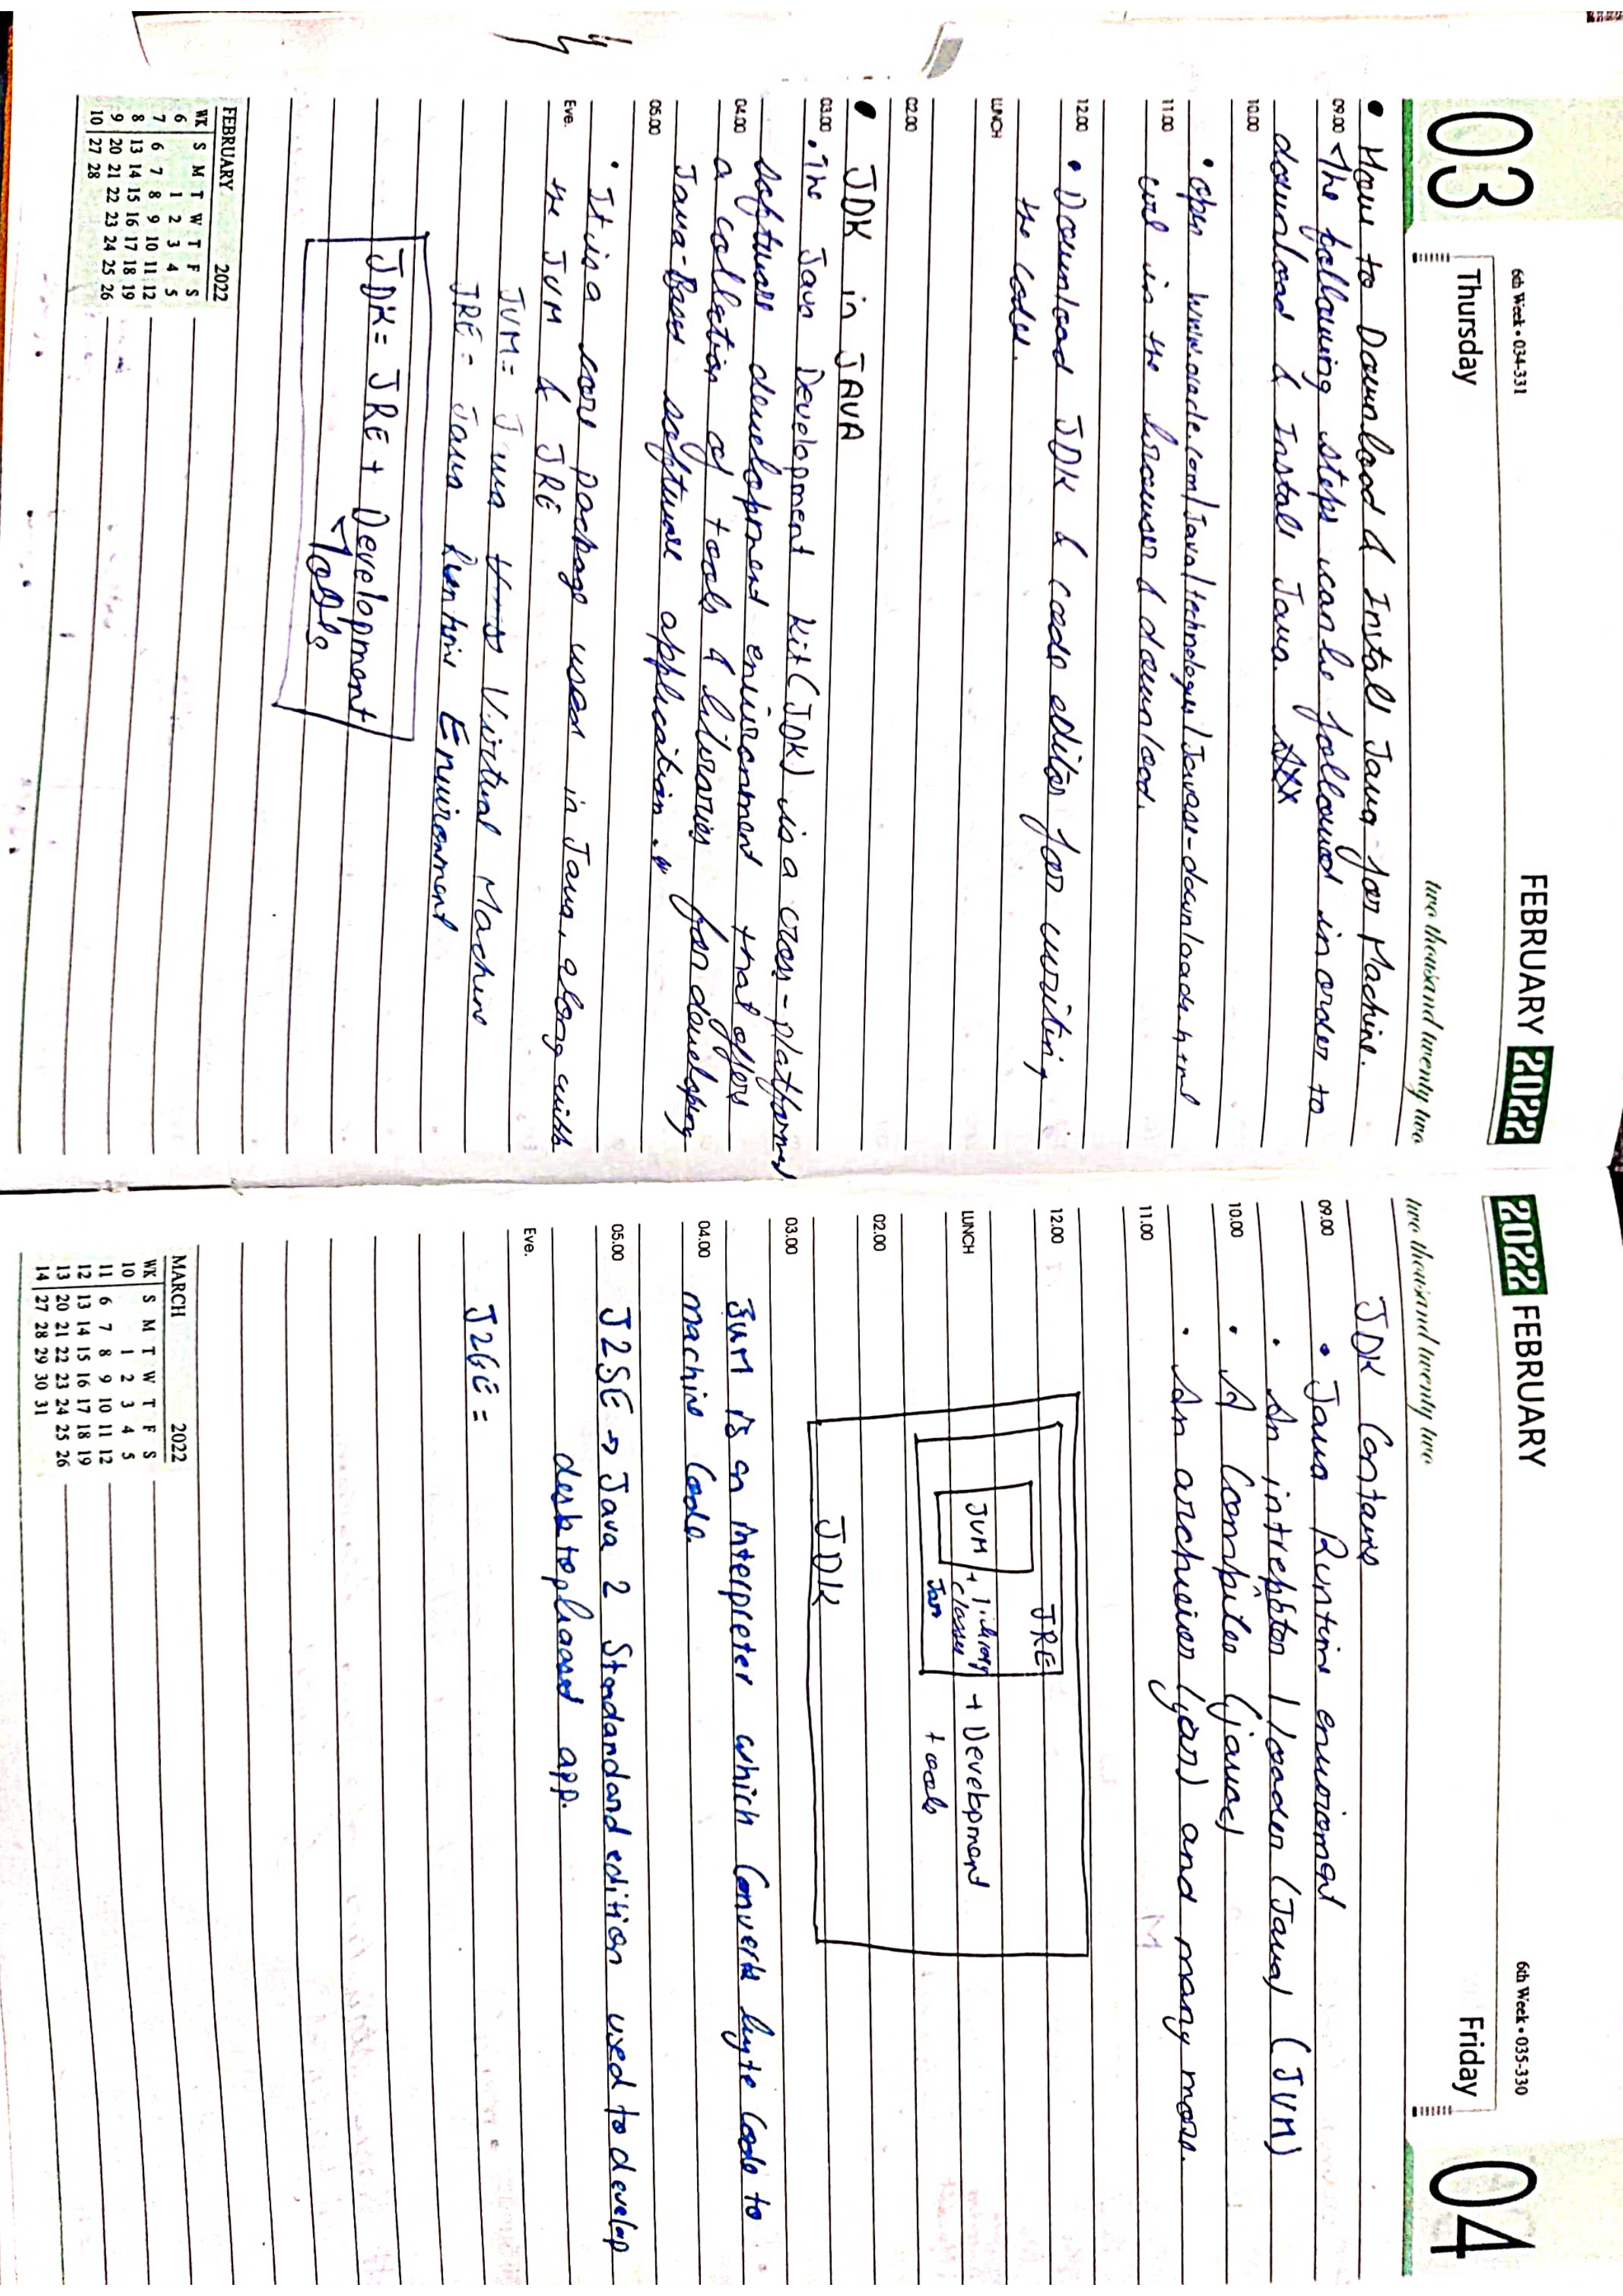 03
6th Week • 034-331
FEBRUARY 2022
Thursday
two thousand twenty two
• How to Download & Install Java for Machine.
09.00 The following steps can be followed in order to
download & Install Java.
10.00
• open www.oracle.com/Java/technologies/Javase-downloads.html
11.00
url in the browser & download.
12.00 • Download JDK & code editor for writing
the codes.
LUNCH
02.00
• JDK in JAVA
03.00 • The Java Development Kit (JDK) is a cross-platformed
software development environment that offers
04.00 a collection of tools & libraries for developing
Java-Based software application.
05.00
• It is a core package used in Java, along with
Eve. the JVM & JRE
JVM = Java Virtual Machine
JRE = Java Runtime Environment
JDK = JRE + Development
Tools
FEBRUARY 2022
WK S M T W T F S
6 1 2 3 4 5
7 6 7 8 9 10 11 12
8 13 14 15 16 17 18 19
9 20 21 22 23 24 25 26
10 27 28
2022 FEBRUARY
6th Week • 035-330
04
Friday
two thousand twenty two
JDK Contains
09.00 • Java Runtime enviroment
• An intrepbter / loader (Java) (JVM)
10.00 • A Compiler (javac)
• An archiever (jar) and many more.
11.00
12.00
JRE
JVM + library
classes
Jar
+ Development
tools
LUNCH
02.00
JDK
03.00
JVM is an interpreter which Converts byte Code to
04.00 machine Code.
05.00 J2SE → Java 2 Standandard edition used to develop
desktopbased app.
Eve.
J2EE =
MARCH 2022
WK S M T W T F S
10 1 2 3 4 5
11 6 7 8 9 10 11 12
12 13 14 15 16 17 18 19
13 20 21 22 23 24 25 26
14 27 28 29 30 31